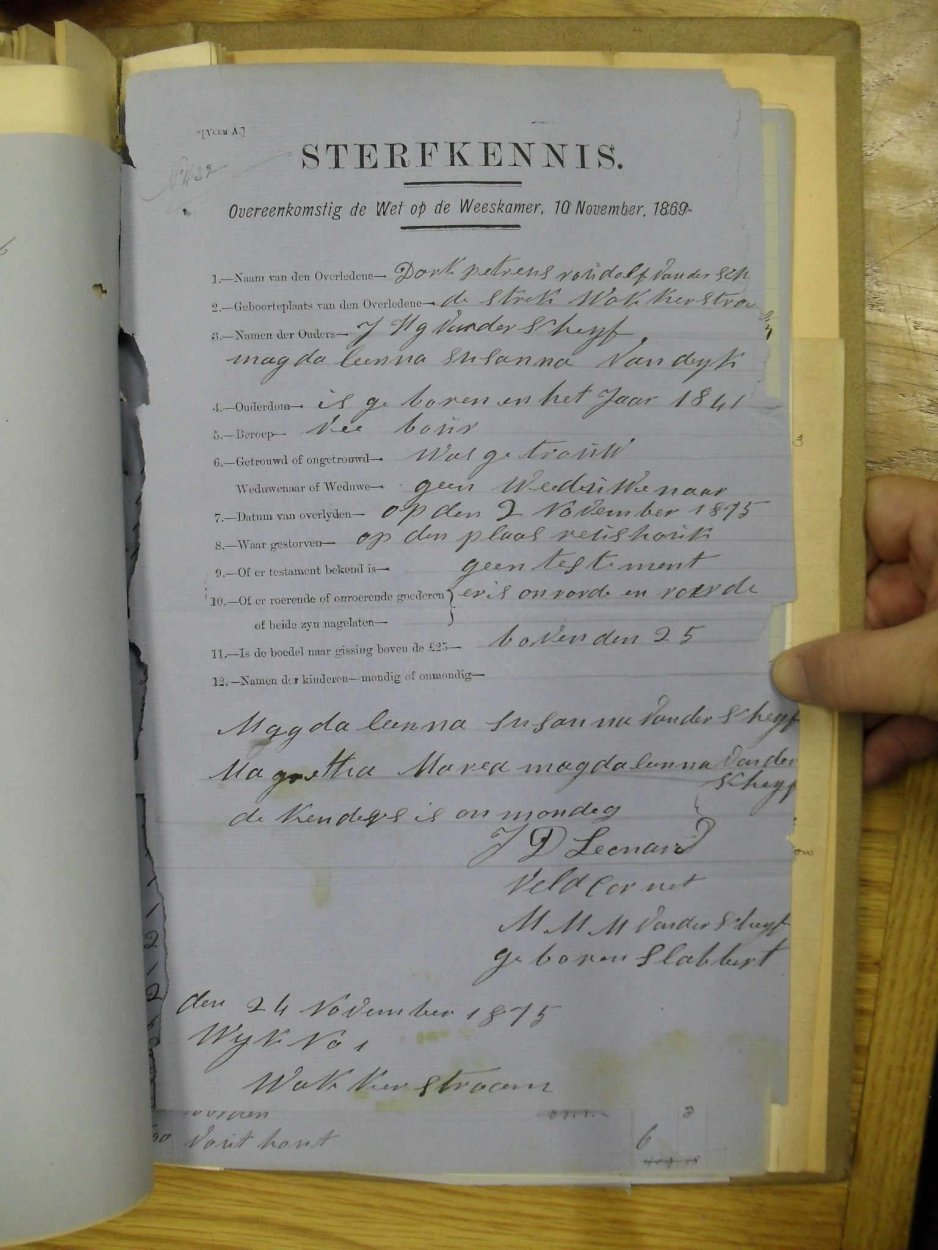 STERFKENNIS.
Overeenkomstig de Wet op de Weeskamer, 10 November, 1869.
1.—Naam van den Overledene— Dork petrens rondolf Vander sch
2.—Geboorteplaats van den Overledene— de strek Wakkerstroo
3.—Namen der Ouders— J H g Vander Scheyf
magdaleenna susanna Vandeyk
4.—Ouderdom— is geboren en het Jaar 1841
5.—Beroep— Vee bour
6.—Getrouwd of ongetrouwd— Was getrouw
Weduwenaar of Weduwe— geen Wedeuwenaar
7.—Datum van overlyden— op den 2 November 1875
8.—Waar gestorven— op den plaas
9.—Of er testament bekend is— geen testement
10.—Of er roerende of onroerende goederen } er is onrorde en roerde
of beide zyn nagelaten—
11.—Is de boedel naar gissing boven de £25— boven den 25
12.—Namen der kinderen—mondig of onmondig—
Magdaleenna susanna Vander Scheyf
Magretha Marea magdaleenna Vander
Scheyf
de kenders is onmondeg
J D Leonard
Veld Cornet
M M M Vander Scheyf
geboren Slabbert
den 24 November 1875
Wyk No 1
Wakkerstroom
6
3